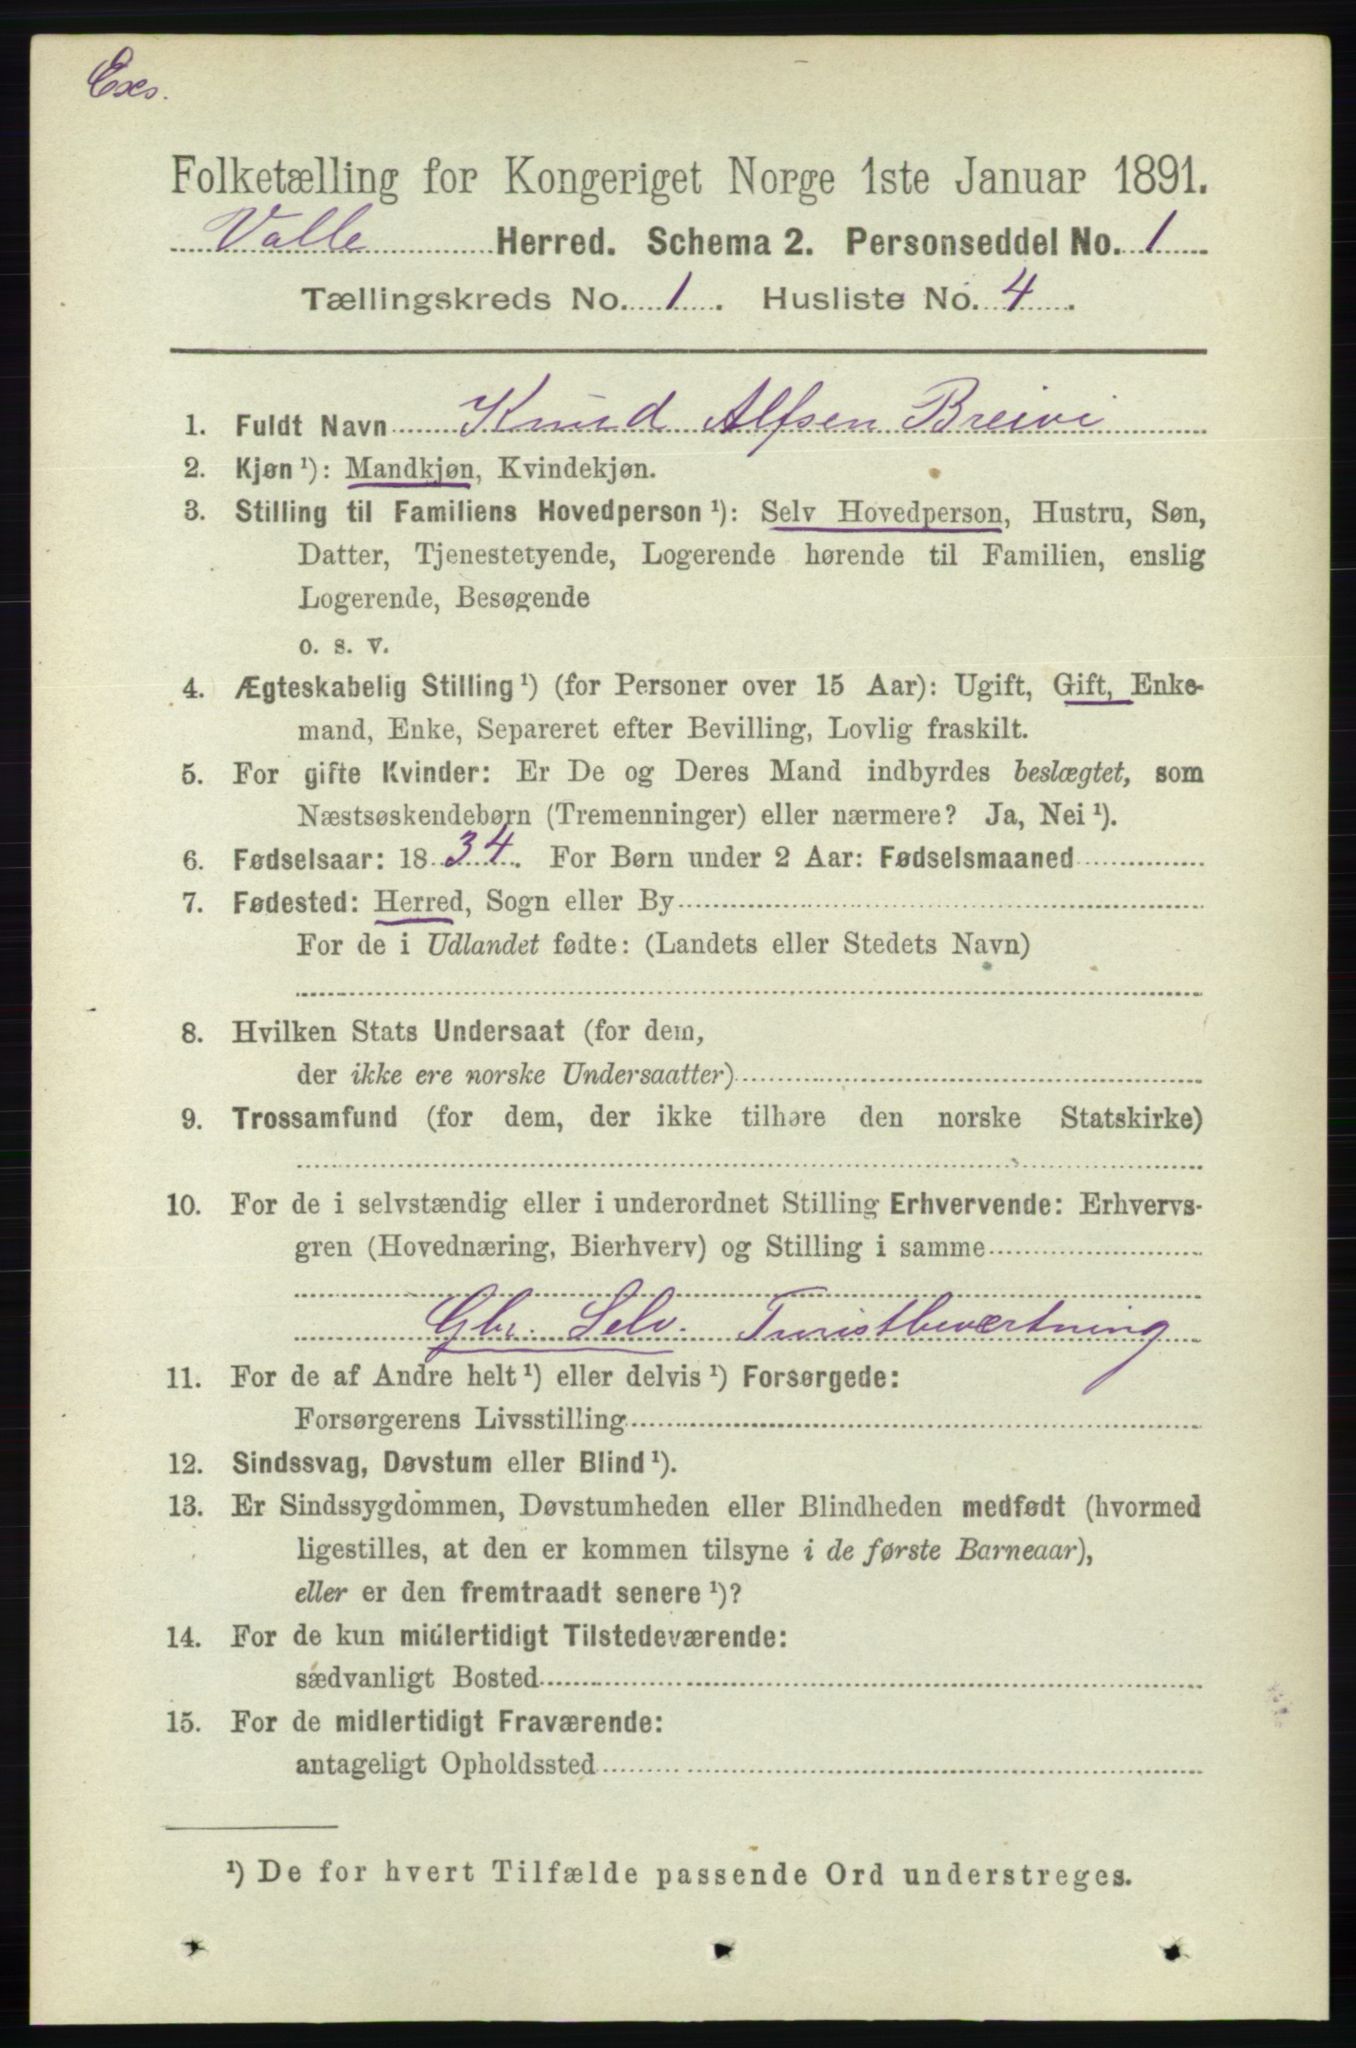 Exs.
Folketælling for Kongeriget Norge 1ste Januar 1891.
Valle Herred. Schema 2. Personseddel No. 1
Tællingskreds No. 1. Husliste No. 4.
1. Fuldt Navn Knud Alfsen Breivi
2. Kjøn ¹): Mandkjøn, Kvindekjøn.
3. Stilling til Familiens Hovedperson ¹): Selv Hovedperson, Hustru, Søn,
Datter, Tjenestetyende, Logerende hørende til Familien, enslig
Logerende, Besøgende
o. s. v.
4. Ægteskabelig Stilling ¹) (for Personer over 15 Aar): Ugift, Gift, Enke-
mand, Enke, Separeret efter Bevilling, Lovlig fraskilt.
5. For gifte Kvinder: Er De og Deres Mand indbyrdes beslægtet, som
Næstsøskendebørn (Tremenninger) eller nærmere? Ja, Nei ¹).
6. Fødselsaar: 1834. For Børn under 2 Aar: Fødselsmaaned
7. Fødested: Herred, Sogn eller By
For de i Udlandet fødte: (Landets eller Stedets Navn)
8. Hvilken Stats Undersaat (for dem,
der ikke ere norske Undersaatter)
9. Trossamfund (for dem, der ikke tilhøre den norske Statskirke)
10. For de i selvstændig eller i underordnet Stilling Erhvervende: Erhvervs-
gren (Hovednæring, Bierhverv) og Stilling i samme
Gbr. Selv. Turistbeværtning
11. For de af Andre helt ¹) eller delvis ¹) Forsørgede:
Forsørgerens Livsstilling
12. Sindssvag, Døvstum eller Blind ¹).
13. Er Sindssygdommen, Døvstumheden eller Blindheden medfødt (hvormed
ligestilles, at den er kommen tilsyne i de første Barneaar),
eller er den fremtraadt senere ¹)?
14. For de kun midlertidigt Tilstedeværende:
sædvanligt Bosted
15. For de midlertidigt Fraværende:
antageligt Opholdssted
¹) De for hvert Tilfælde passende Ord understreges.